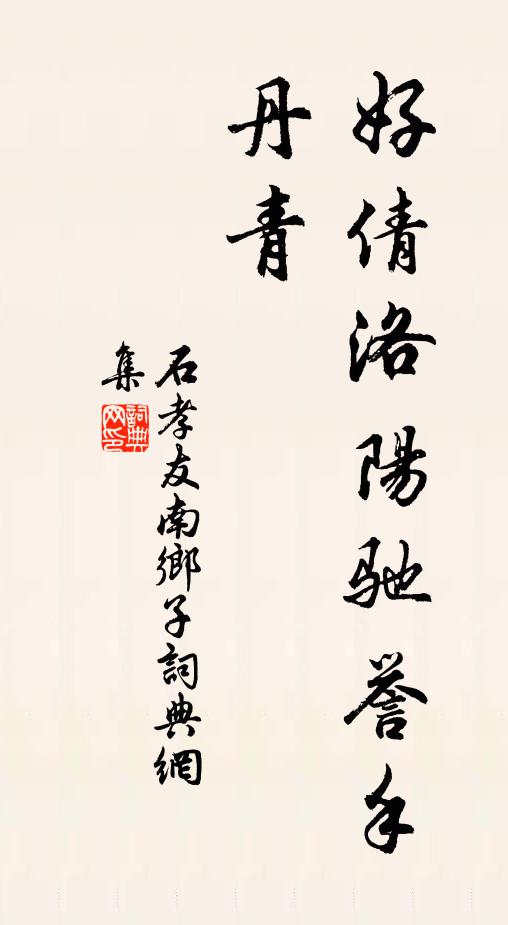 好倩洛陽馳譽手
丹青
石孝友南鄉子詞典網
集
詞典
网印